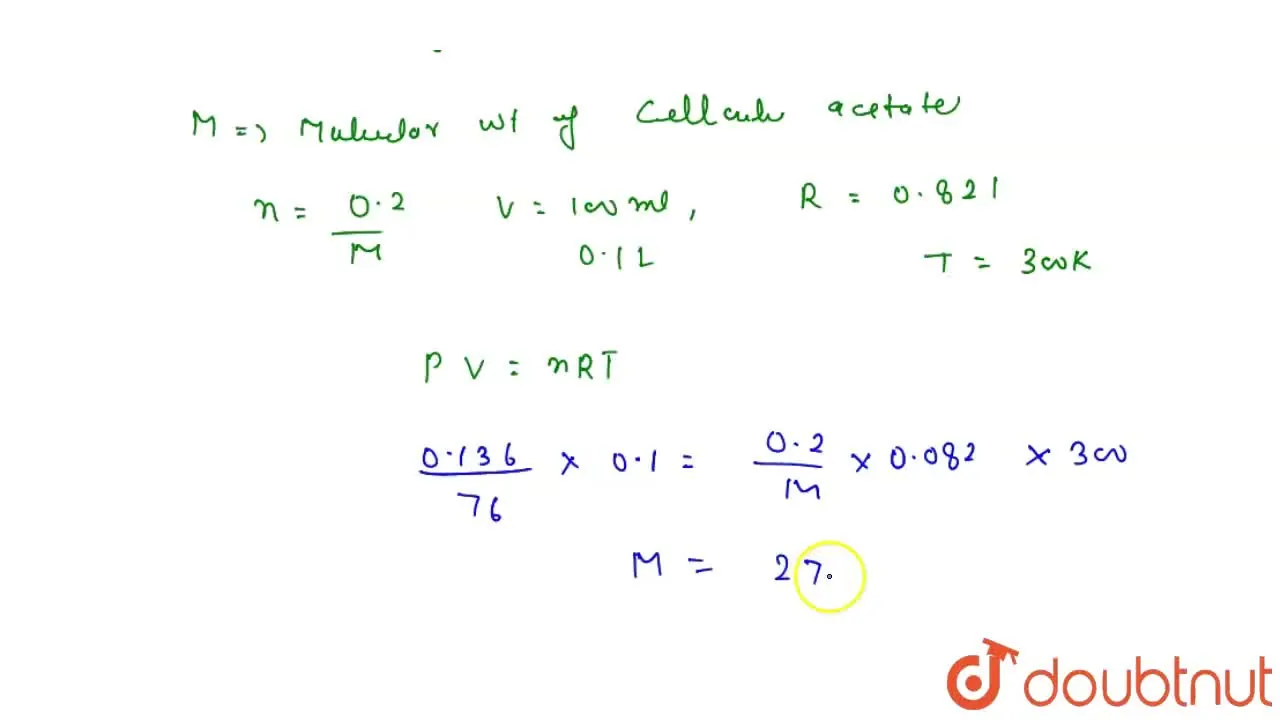 M => Molecular wt of Cellulose acetate
n = 0.2 / M V = 100 ml, R = 0.821
0.1 L T = 300K
P V = nRT
0.136 / 76 × 0.1 = 0.2 / M × 0.082 × 300
M = 27.
doubtnut